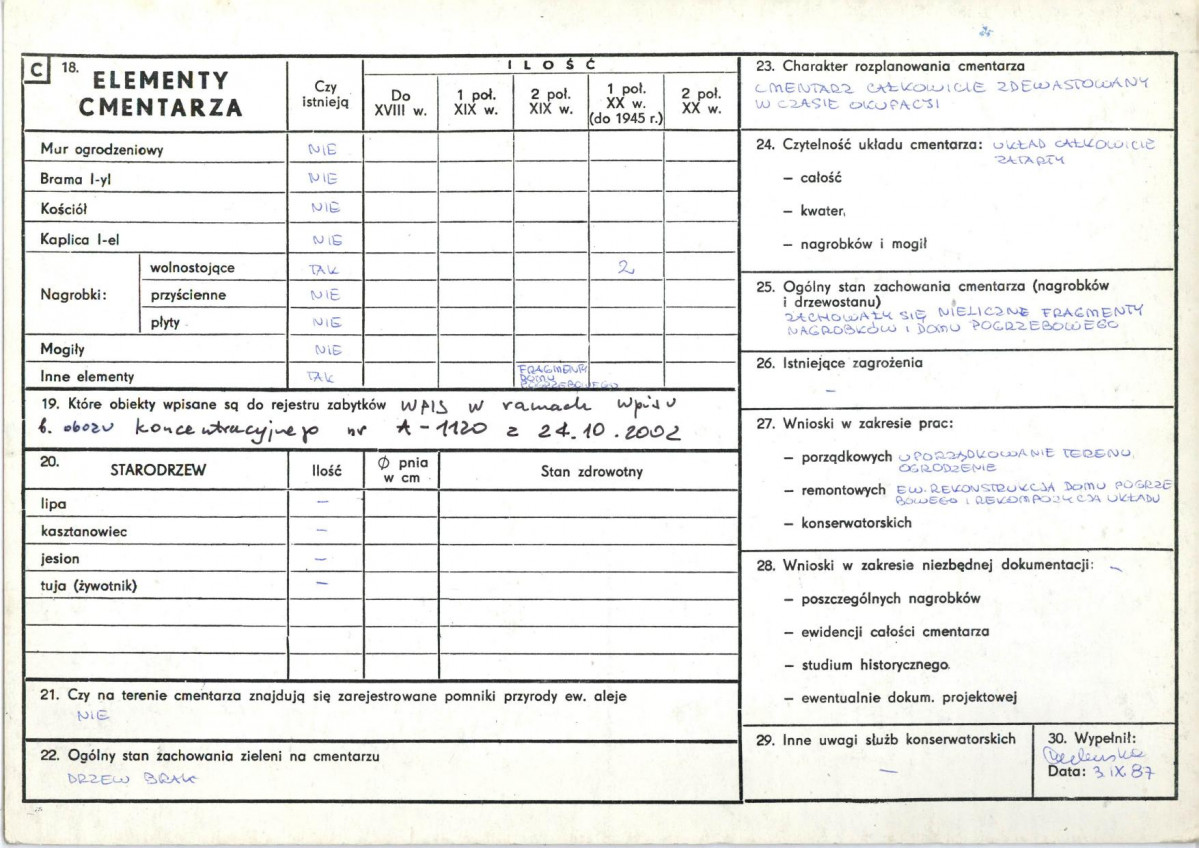 C 18. ELEMENTY CMENTARZA
Czy istnieją
ILOŚĆ
Do XVIII w.
1 poł. XIX w.
2 poł. XIX w.
1 poł. XX w. (do 1945 r.)
2 poł. XX w.
Mur ogrodzeniowy NIE
Brama I-yl NIE
Kościół NIE
Kaplica I-el NIE
Nagrobki:
wolnostojące TAK 2
przyścienne NIE
płyty NIE
Mogiły NIE
Inne elementy TAK FRAGMENTY DOMU POGRZEBOWEGO
19. Które obiekty wpisane są do rejestru zabytków WPIS w ramach wpisu
b. obozu koncentracyjnego nr A-1120 z 24.10.2002
20. STARODRZEW Ilość Ø pnia w cm Stan zdrowotny
lipa –
kasztanowiec –
jesion –
tuja (żywotnik) –
21. Czy na terenie cmentarza znajdują się zarejestrowane pomniki przyrody ew. aleje
NIE
22. Ogólny stan zachowania zieleni na cmentarzu
DRZEW BRAK
23. Charakter rozplanowania cmentarza
CMENTARZ CAŁKOWICIE ZDEWASTOWANY
W CZASIE OKUPACJI
24. Czytelność układu cmentarza: UKŁAD CAŁKOWICIE
ZATARTY
– całość
– kwater,
– nagrobków i mogił
25. Ogólny stan zachowania cmentarza (nagrobków
i drzewostanu)
ZACHOWAŁY SIĘ NIELICZNE FRAGMENTY
NAGROBKÓW I DOMU POGRZEBOWEGO
26. Istniejące zagrożenia
–
27. Wnioski w zakresie prac:
– porządkowych UPORZĄDKOWANIE TERENU,
OGRODZENIE
– remontowych EW. REKONSTRUKCJA DOMU POGRZE
BOWEGO I REKOMPOZYCJA UKŁADU
– konserwatorskich
28. Wnioski w zakresie niezbędnej dokumentacji: –
– poszczególnych nagrobków
– ewidencji całości cmentarza
– studium historycznego.
– ewentualnie dokum. projektowej
29. Inne uwagi służb konserwatorskich
–
30. Wypełnił:
Data: 3.IX.87